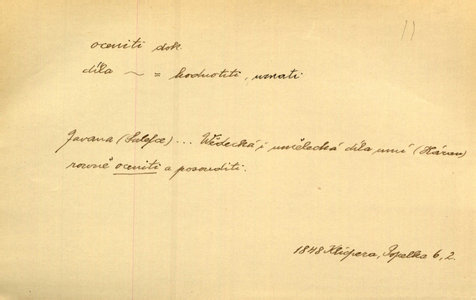 11
oceniti dok.
díla ~ = hodnotiti, uznati
Javana (Salefce) ... Wědecká i umělecká díla umí (Háran)
rovně oceniti a posouditi.
1848 Klicpera, Popelka 6, 2.